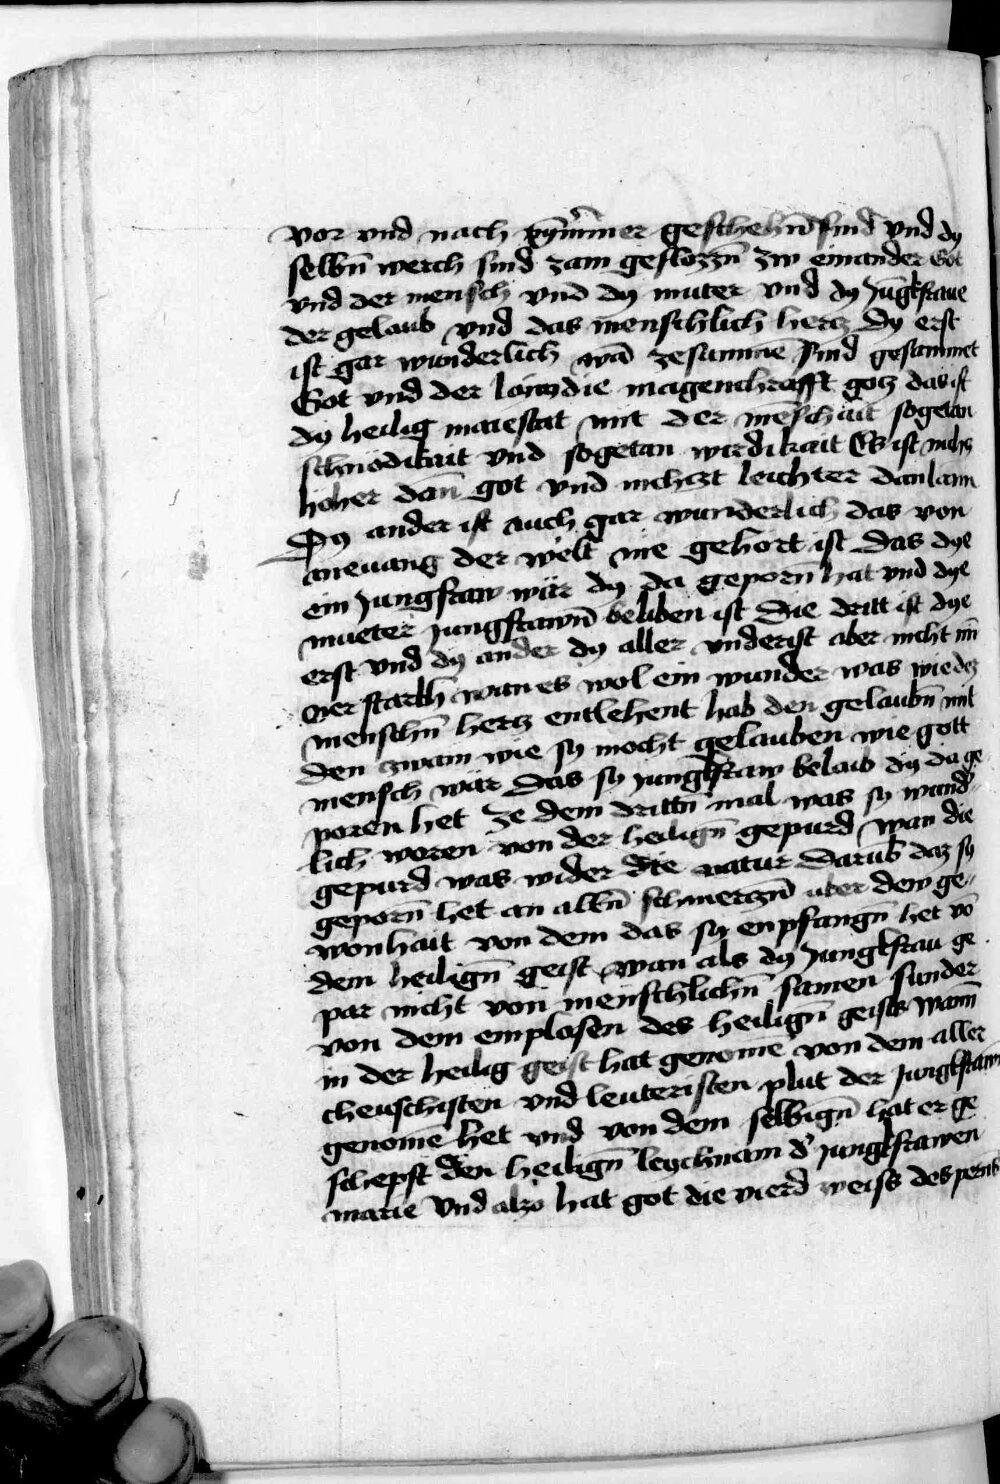 vor vnd nach nymmer geschehn̄ sind vnd dy
selbn̄ werch sind zam geslozzn̄ zw einander Got
vnd der mensch vnd dy muter vnd dy Jungkfraue
der gelaub vnd das menschlich hertz Dy erst
ist gar wunderlich wā zesammē sind gesammet
Got vnd der laim die magenchrafft gotz das ist
dy heilig maiestat mit der mēschait sogetan
schnödikait vnd sogetan wirdikait Es ist nichtz
höher dan̄ got vnd nichtzt leichter dan laim
Dy ander ist auch gar wunderlich das von
aneuang der welt nie gehort ist Das dye
ein Jungfraw wär dy da geporn̄ hat vnd dye
mueter Jungfrawn̄ beliben ist Die dritt ist dye
erst vnd dy ander dy aller vnderist aber nicht mī
ner starkh wan es wol ein wunder was wie dez
menschn̄ hertz entlehent hab den gelaubn̄ mit
den zwain wie sy mocht gelauben wie gott
mensch wär Das sy Jungkfraw belaib dy da ge
poren het Ze dem drittn̄ mal was sy wund̓-
lich woren von der heilign̄ gepurd wan die
gepurd was wider die natur Darūb daz sy
geporn̄ het an alln̄ schmerczn̄ aber dew ge-
wonhait von dem das sy enpfangn̄ het vō
dem heilign̄ geist wan als dy Jungkfrau ge
par nicht von menschlichn̄ samen sunder
von dem emplasen des heilign̄ geists wann
in der heilig geist hat genomē von dem aller
cheuschisten vnd leuteristen plut der Jungkfrawn
genomē het vnd von dem selbign̄ hat er ge
schepft den heilign̄ leychnam d̓ Jungkfrawen
marie vnd alzo hat got die vierd weiss des